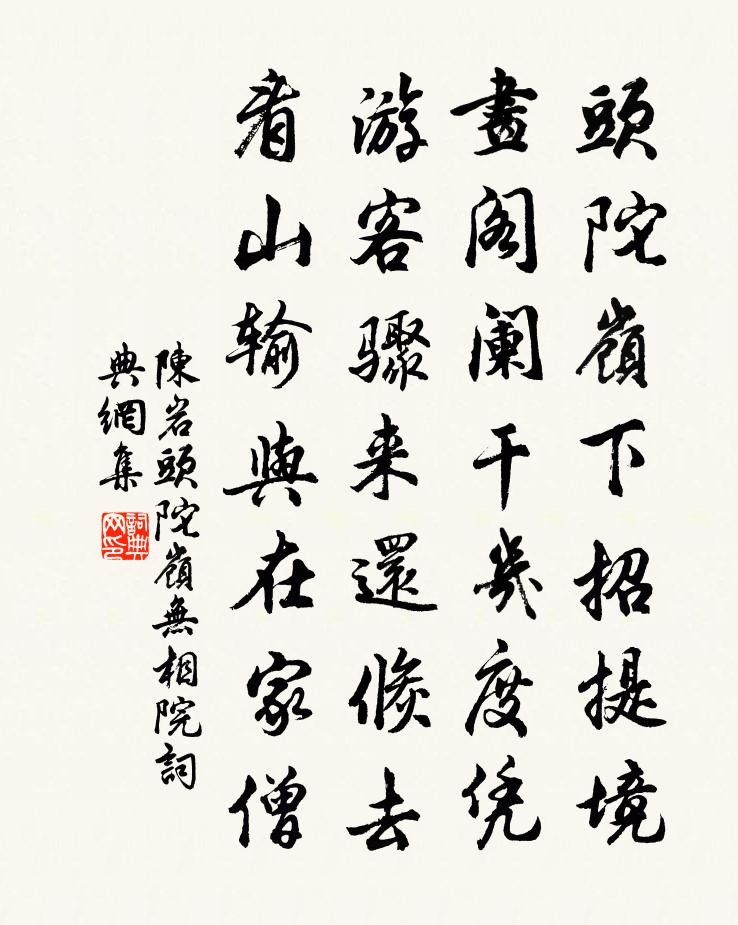 頭陀嶺下招提境
畫閣闌干幾度凭
游客驟来還倏去
看山輸與在家僧
陳岩頭陀嶺無相院詞
典網集
詞典
网印